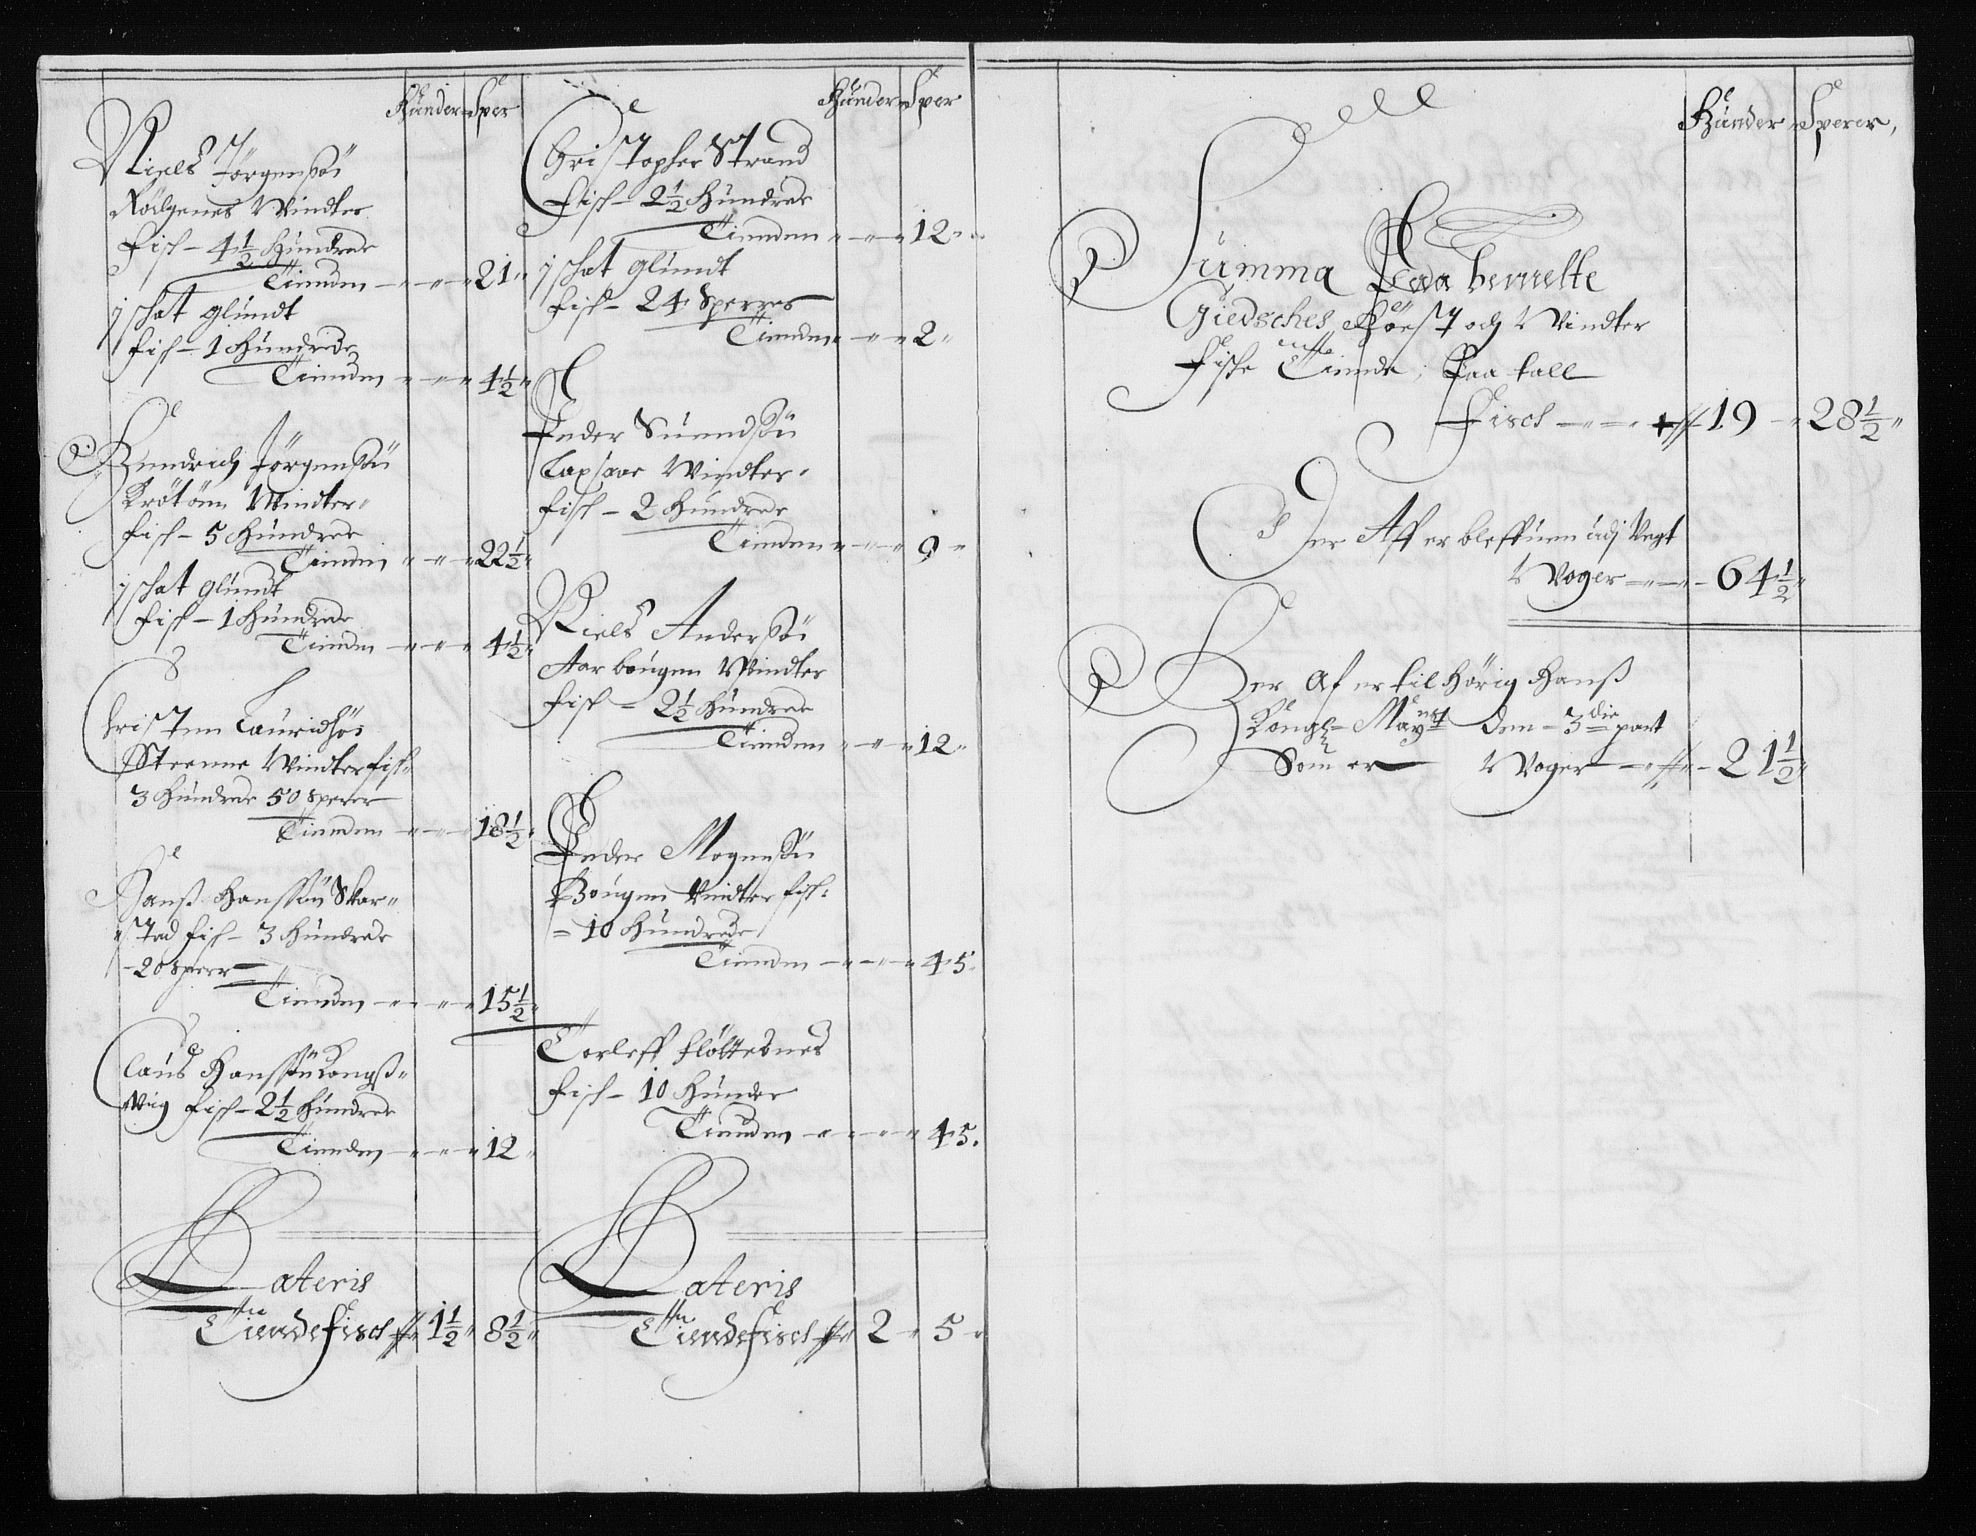 Hunder Sper
Niels Jörgensön
Rölgenes Vindter
Fisch - 4½ Hundrede
Tienden - - - 21
j schat glundt
fisch - 1 Hundrede
Tienden - - - 4½
Hendrich Jörgensön
Krötöen Vindter
fisch - 5 Hundrede
Tienden - - - 22½
j schat glundt
fisch - 1 Hundrede
Tienden - - - 4½
Christen Lauridsöe
Steenne Vindterfisch
3 Hundrede 50 Sperer
Tienden - - - 18½
Hanß Hanssön Skar-
stad fisch - 3 Hundrede
- 20 sperr
Tienden - - - 15½
Claus Hanssön Kongß-
viig fisch - 2½ Hundrede
Tienden - - - 12
Lateris
Tiende Fisch - 1½ 8½
Hunder Sper
Christopher Strand
Fisch - 2½ Hundrede
Tienden - - - 12
j schat glundt
fisch - 24 Sperrer
Tienden - - - 2
Peder Suendsön
Laxaae Vindter
fisch - 2 Hundrede
Tienden - - - 9
Niels Andersön
Aarbougen Vindter
fisch - 2½ Hundrede
Tienden - - - 12
Peder Mogensön
Bougen Vindter fisch
= 10 Hundrede
Tienden - - - 45
Torleff Fløttesnes
fisch - 10 Hunder
Tienden - - - 45
Lateris
Tiende Fisch 2 - 5
Hunder Sperer
Summa Paa berurte
Giedsches Höest och Vindter
Fiske Tiende, Paa tall
Fisch - - - 19 - 28½
Der Aff er bleffuen udj Vegt
Voger - - - 64½
Her af er til hörig Hanß
Kongl- Maytt den - 3die part
Som er Voger - - 21½